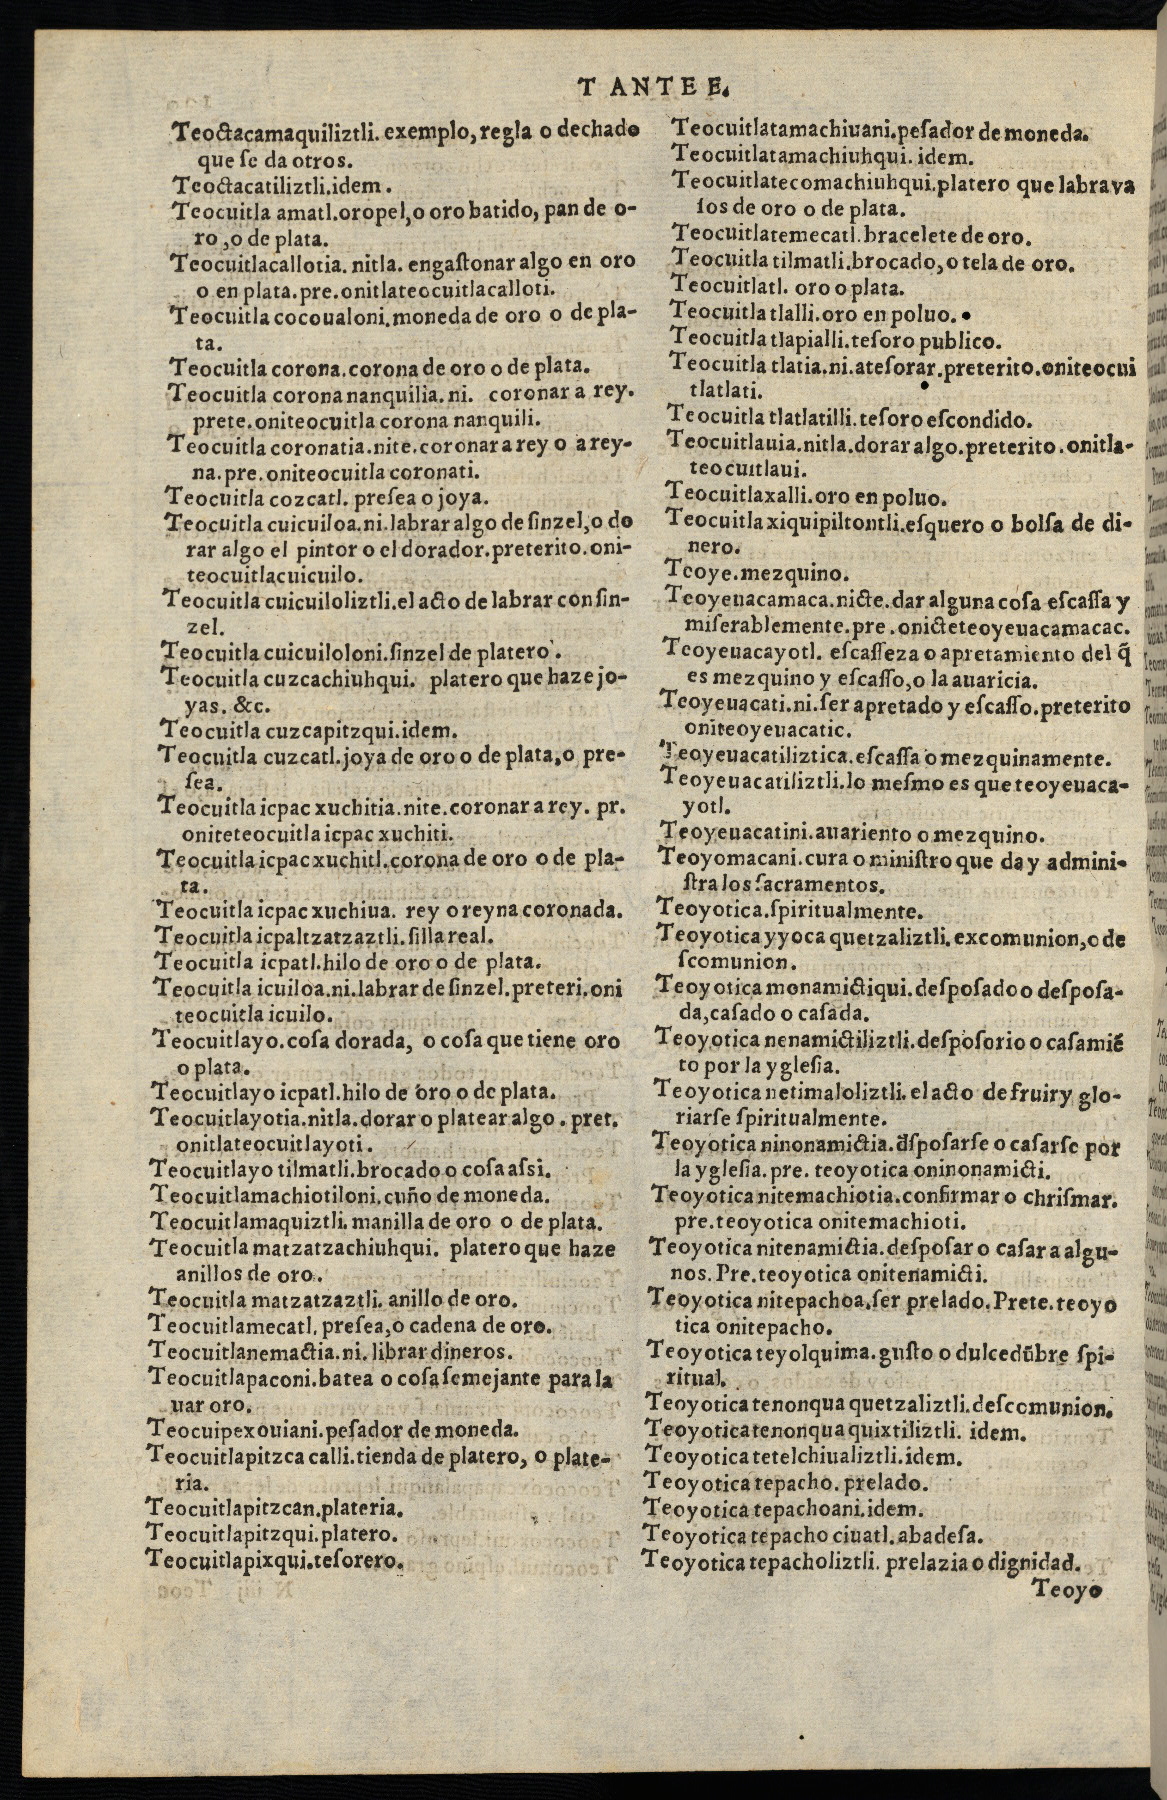 T ANTE E.
Teoctacamaquiliztli. exemplo, regla o dechado
que ſe da otros.
Teoctacatiliztli.idem.
Teocuitla amatl.oropel,o oro batido, pan de o-
ro ,o de plata.
Teocuitlacallotia. nitla. engaſtonar algo en oro
o en plata.pre.onitlateocuitlacalloti.
Teocuitla cocoualoni.moneda de oro o de pla-
ta.
Teocuitla corona.corona de oro o de plata.
Teocuitla corona nanquilia.ni. coronar a rey.
prete.oniteocuitla corona nanquili.
Teocuitla coronatia.nite.coronar a rey o a rey-
na.pre.oniteocuitla coronati.
Teocuitla cozcatl. preſea o joya.
Teocuitla cuicuiloa.ni.labrar algo de ſinzel,o do
rar algo el pintor o el dorador.preterito.oni-
teocuitlacuicuilo.
Teocuitla cuicuiloliztli.el acto de labrar con ſin-
zel.
Teocuitla cuicuiloloni.ſinzel de platero.
Teocuitla cuzcachiuhqui. platero que haze jo-
yas. &c.
Teocuitla cuzcapitzqui.idem.
Teocuitla cuzcatl.joya de oro o de plata,o pre-
ſea.
Teocuitla icpac xuchitia.nite.coronar a rey. pr.
oniteteocuitla icpac xuchiti.
Teocuitla icpac xuchitl.corona de oro o de pla-
ta.
Teocuitla icpac xuchiua. rey o reyna coronada.
Teocuitla icpaltzatzaztli.ſilla real.
Teocuitla icpatl.hilo de oro o de plata.
Teocuitla icuiloa.ni.labrar de ſinzel.preteri.oni
teocuitla icuilo.
Teocuitlayo.coſa dorada, o coſa que tiene oro
o plata.
Teocuitlayo icpatl.hilo de oro o de plata.
Teocuitlayotia.nitla.dorar o platear algo. pret.
onitlateocuitlayoti.
Teocuitlayo tilmatli.brocado o coſa aſsi.
Teocuitlamachiotiloni.cuño de moneda.
Teocuitlamaquiztli.manilla de oro o de plata.
Teocuitla matzatzachiuhqui. platero que haze
anillos de oro.
Teocuitla matzatzaztli. anillo de oro.
Teocuitlamecatl. preſea,o cadena de oro.
Teocuitlanemactia.ni. librar dineros.
Teocuitlapaconi.batea o coſa ſemejante para la
uar oro.
Teocuipexouiani.peſador de moneda.
Teocuitlapitzca calli.tienda de platero, o plate-
ria.
Teocuitlapitzcan.plateria.
Teocuitlapitzqui.platero.
Teocuitlapixqui.teſorero.
Teocuitlatamachiuani.peſador de moneda.
Teocuitlatamachiuhqui. idem.
Teocuitlatecomachiuhqui.platero que labra va
ſos de oro o de plata.
Teocuitlatemecatl.bracelete de oro.
Teocuitla tilmatli.brocado,o tela de oro.
Teocuitlatl. oro o plata.
Teocuitla tlalli.oro en poluo.
Teocuitla tlapialli.teſoro publico.
Teocuitla tlatia.ni.ateſorar.preterito.oniteocui
tlatlati.
Teocuitla tlatlatilli.teſoro eſcondido.
Teocuitlauia.nitla.dorar algo.preterito.onitla-
teocuitlaui.
Teocuitlaxalli.oro en poluo.
Teocuitla xiquipiltontli.eſquero o bolſa de di-
nero.
Teoye.mezquino.
Teoyeuacamaca.nicte.dar alguna coſa eſcaſſa y
miſerablemente.pre.onicteteoyeuacamacac.
Teoyeuacayotl. eſcaſſeza o apretamiento del q̃
es mezquino y eſcaſſo,o la auaricia.
Teoyeuacati.ni.ſer apretado y eſcaſſo.preterito
oniteoyeuacatic.
Teoyeuacatiliztica.eſcaſſa o mezquinamente.
Teoyeuacatiliztli.lo meſmo es que teoyeuaca-
yotl.
Teoyeuacatini.auariento o mezquino.
Teoyomacani.cura o miniſtro que da y admini-
ſtra los ſacramentos.
Teoyotica.ſpiritualmente.
Teoyotica yyoca quetzaliztli.excomunion,o de
ſcomunion.
Teoyotica monamictiqui.deſpoſado o deſpoſa-
da,caſado o caſada.
Teoyotica nenamictiliztli.deſpoſorio o caſamiē
to por la ygleſia.
Teoyotica netimaloliztli.el acto de fruir y glo-
riarſe ſpiritualmente.
Teoyotica ninonamictia.d̄ſpoſarſe o caſarſe por
la ygleſia.pre. teoyotica oninonamicti.
Teoyotica nitemachiotia.confirmar o chriſmar.
pre.teoyotica onitemachioti.
Teoyotica nitenamictia.deſpoſar o caſar a algu-
nos.Pre.teoyotica onitenamicti.
Teoyotica nitepachoa.ſer prelado.Prete.teoyo
tica onitepacho.
Teoyotica teyolquima.guſto o dulcedūbre ſpi-
ritual.
Teoyotica tenonqua quetzaliztli.deſcomunion.
Teoyotica tenonqua quixtiliztli. idem.
Teoyotica tetelchiualiztli.idem.
Teoyotica tepacho. prelado.
Teoyotica tepachoani.idem.
Teoyotica tepacho ciuatl.abadeſa.
Teoyotica tepacholiztli. prelazia o dignidad.
Teoyo